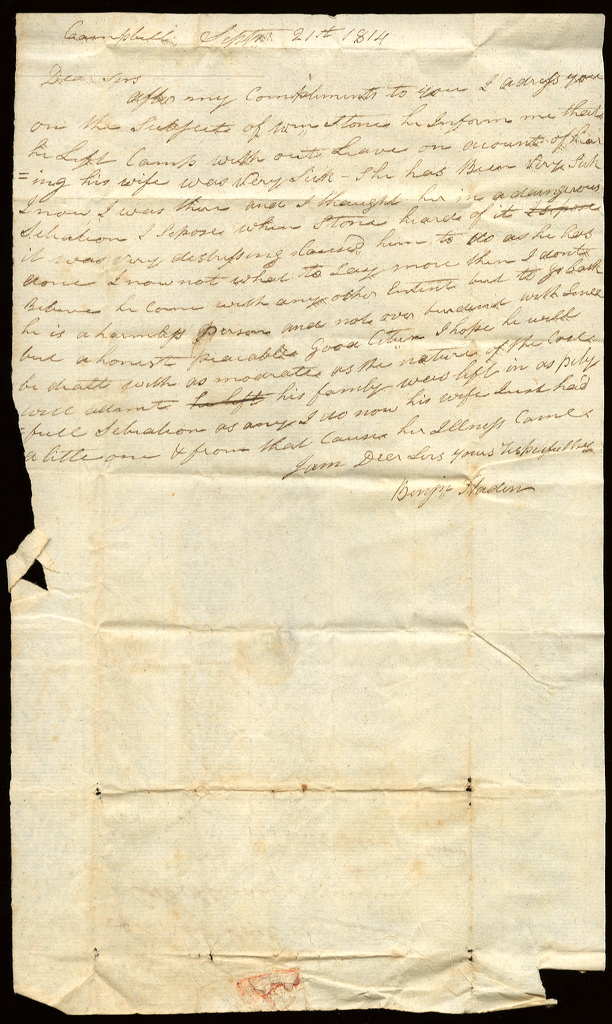 Campbell Septr. 21st 1814
Dear Sirs
after my Compliments to you I adress you
on the Subject of Wm. Stone he Inform me that
he Left Camp with out Leave on acount of hear
=ing his wife was Very Sick - She has Been Very Sick
I now I was thare and I thought her in a dangerous
Setuation I Sepose when Stone heard of it
it was very destressing Caused him to do as he has
done I now not what to Say more then I dont
Believe he Come with any other Entent but to go back
he is a harmless person and not over burdend with Sence
but a honest peacable Good Citizen I hope he will
be dealt with as moderate as the nature of the Case
will admit he left his family was left in as pity
=full Setuation as any I do now his wife Just had
a little one & from that Cause her Illness Came
I am Dear Sirs yours Respectfully
Benjn. Haden